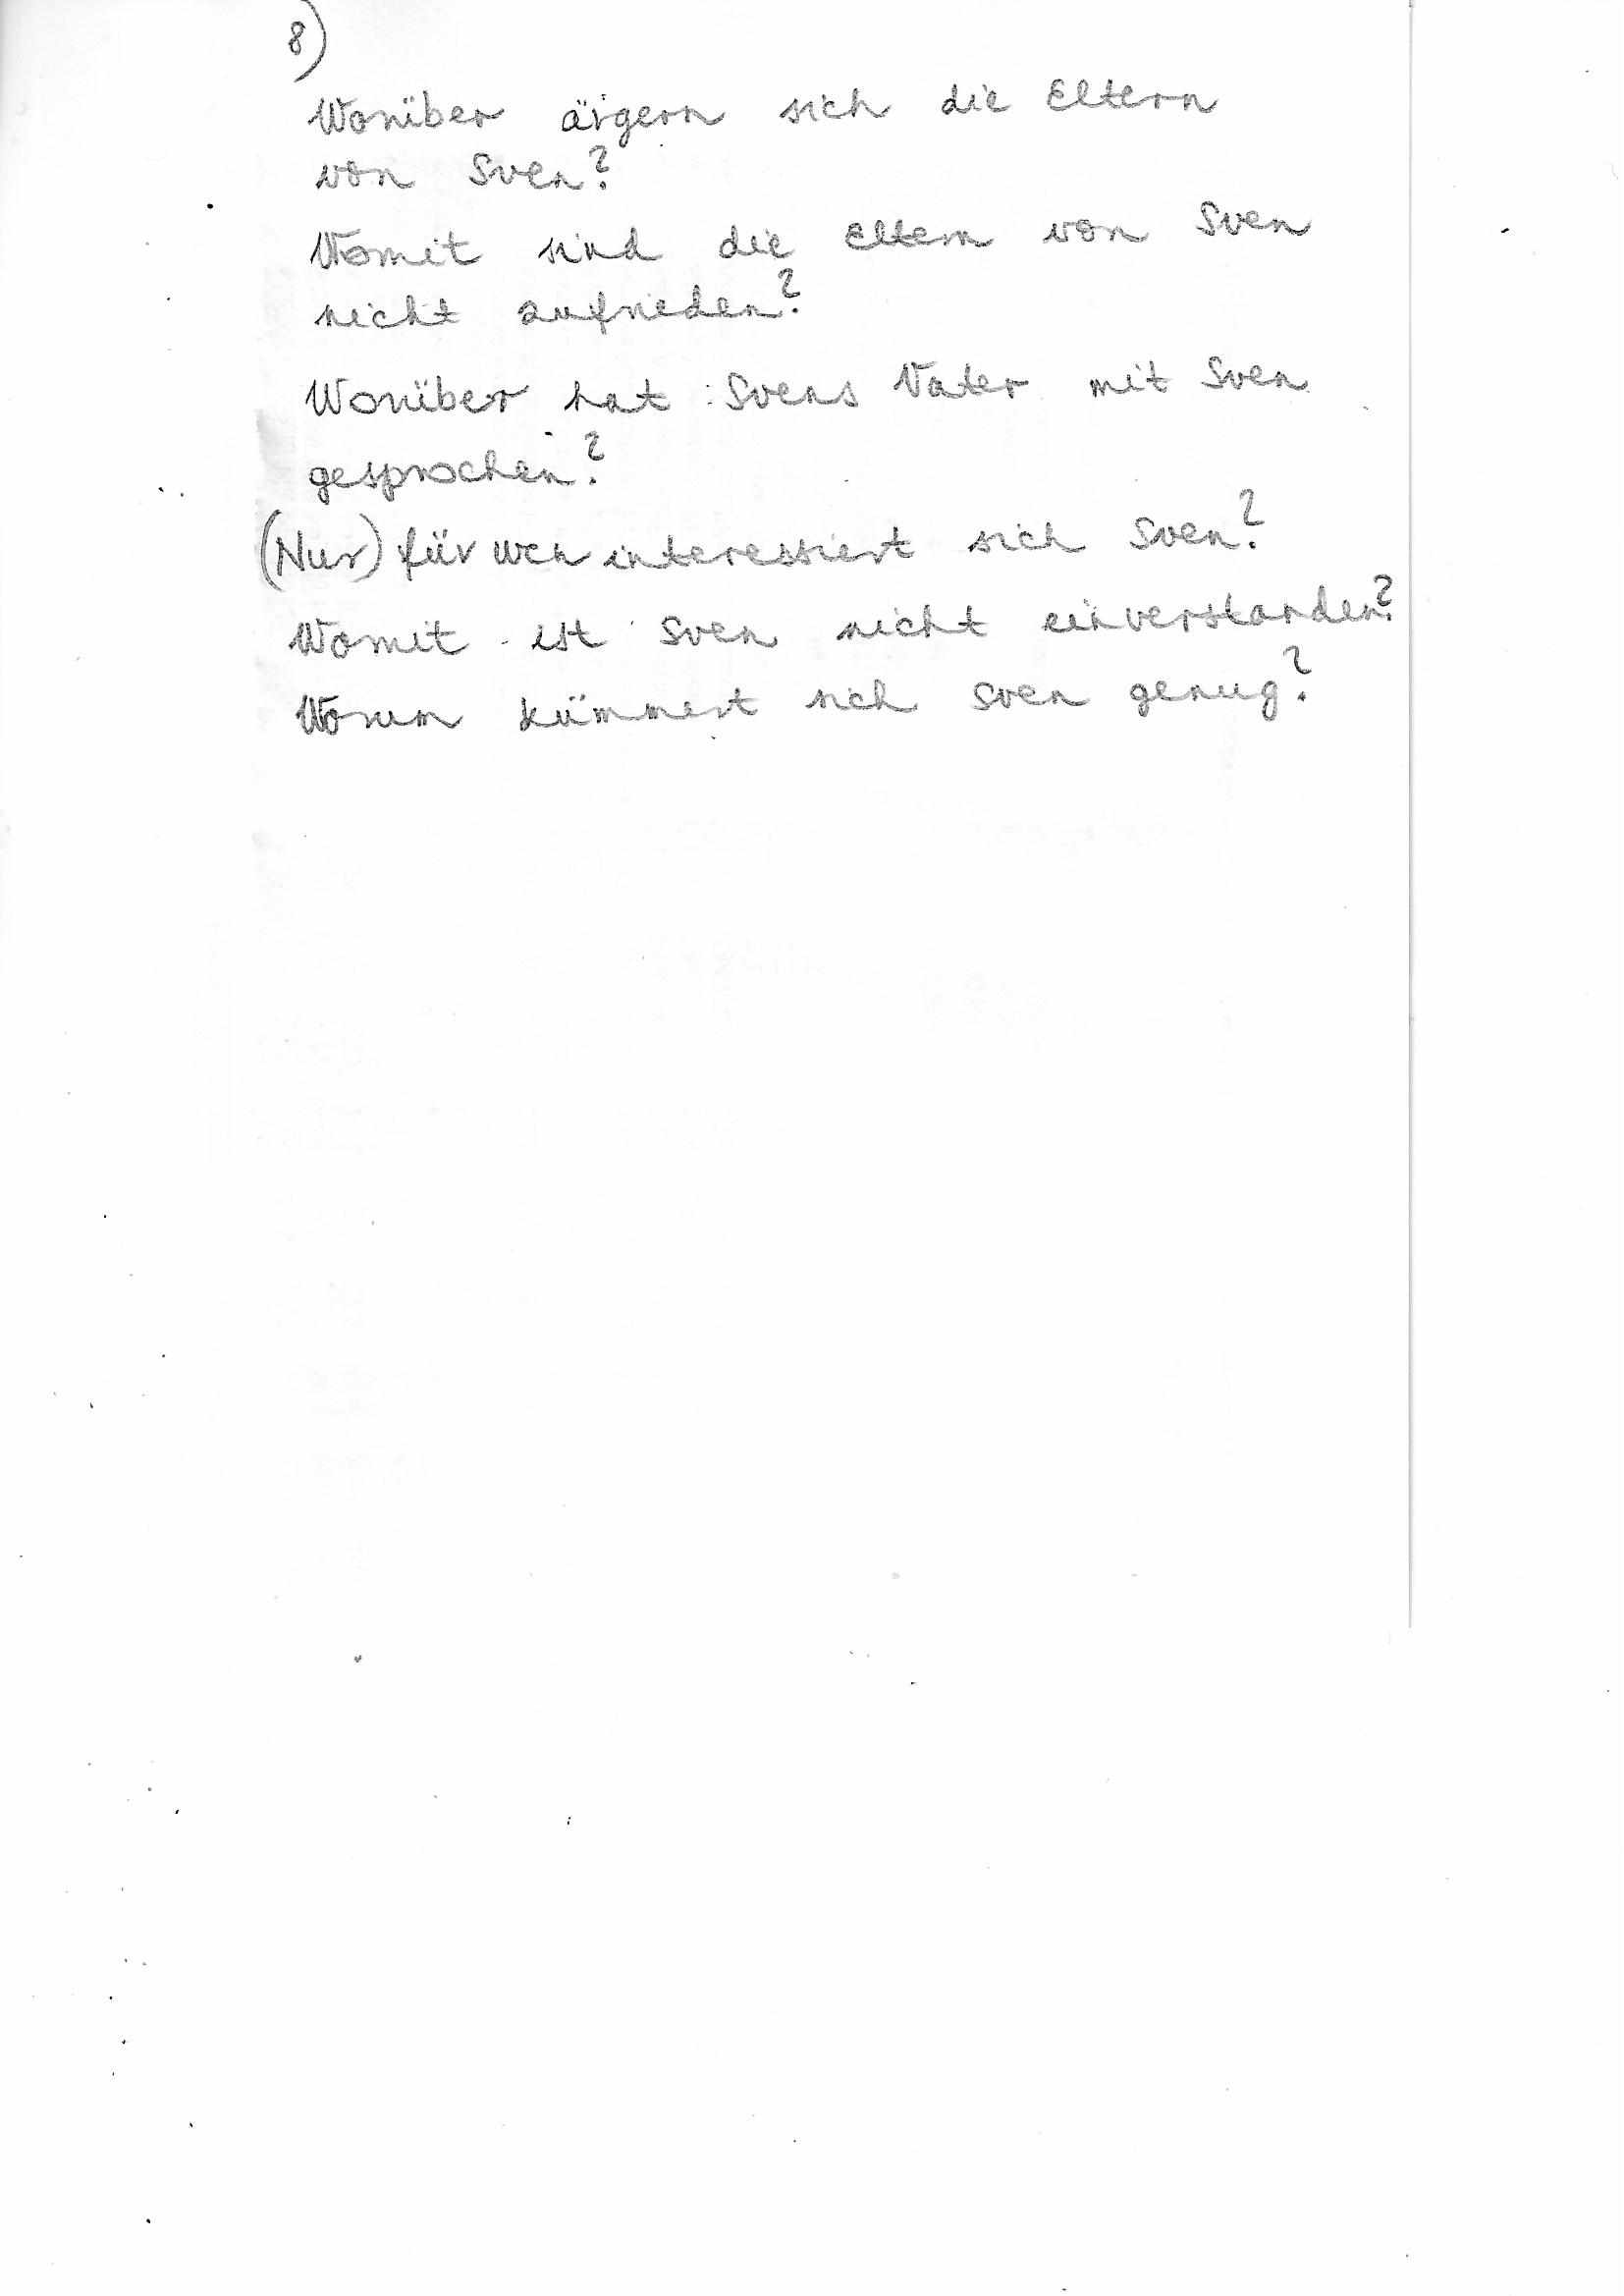 8)
Worüber ärgern sich die Eltern
von Sven?
Womit sind die Eltern von Sven
nicht zufrieden?
Worüber hat Svens Vater mit Sven
gesprochen?
(Nur) für wen interessiert sich Sven?
Womit ist Sven nicht einverstanden?
Worum kümmert sich Sven genug?